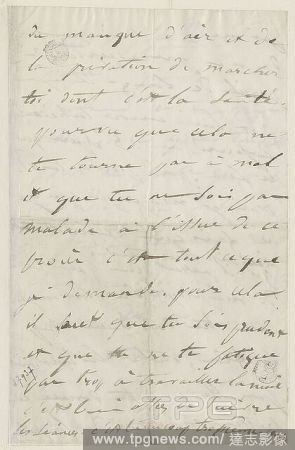 du manque d'air et de
la privation de marcher
toi dont c'est la santé.
pourvu que cela ne
te tourne pas à mal
et que tu ne sois pas
malade à l'issue de ce
procès c'est tout ce que
je demande. pour cela
il faut que tu sois prudent
et que tu ne te fatigue
pas trop à travailler la nuit
c'est bien assez de
les séances
TPG
www.tpgnews.com / 達志影像